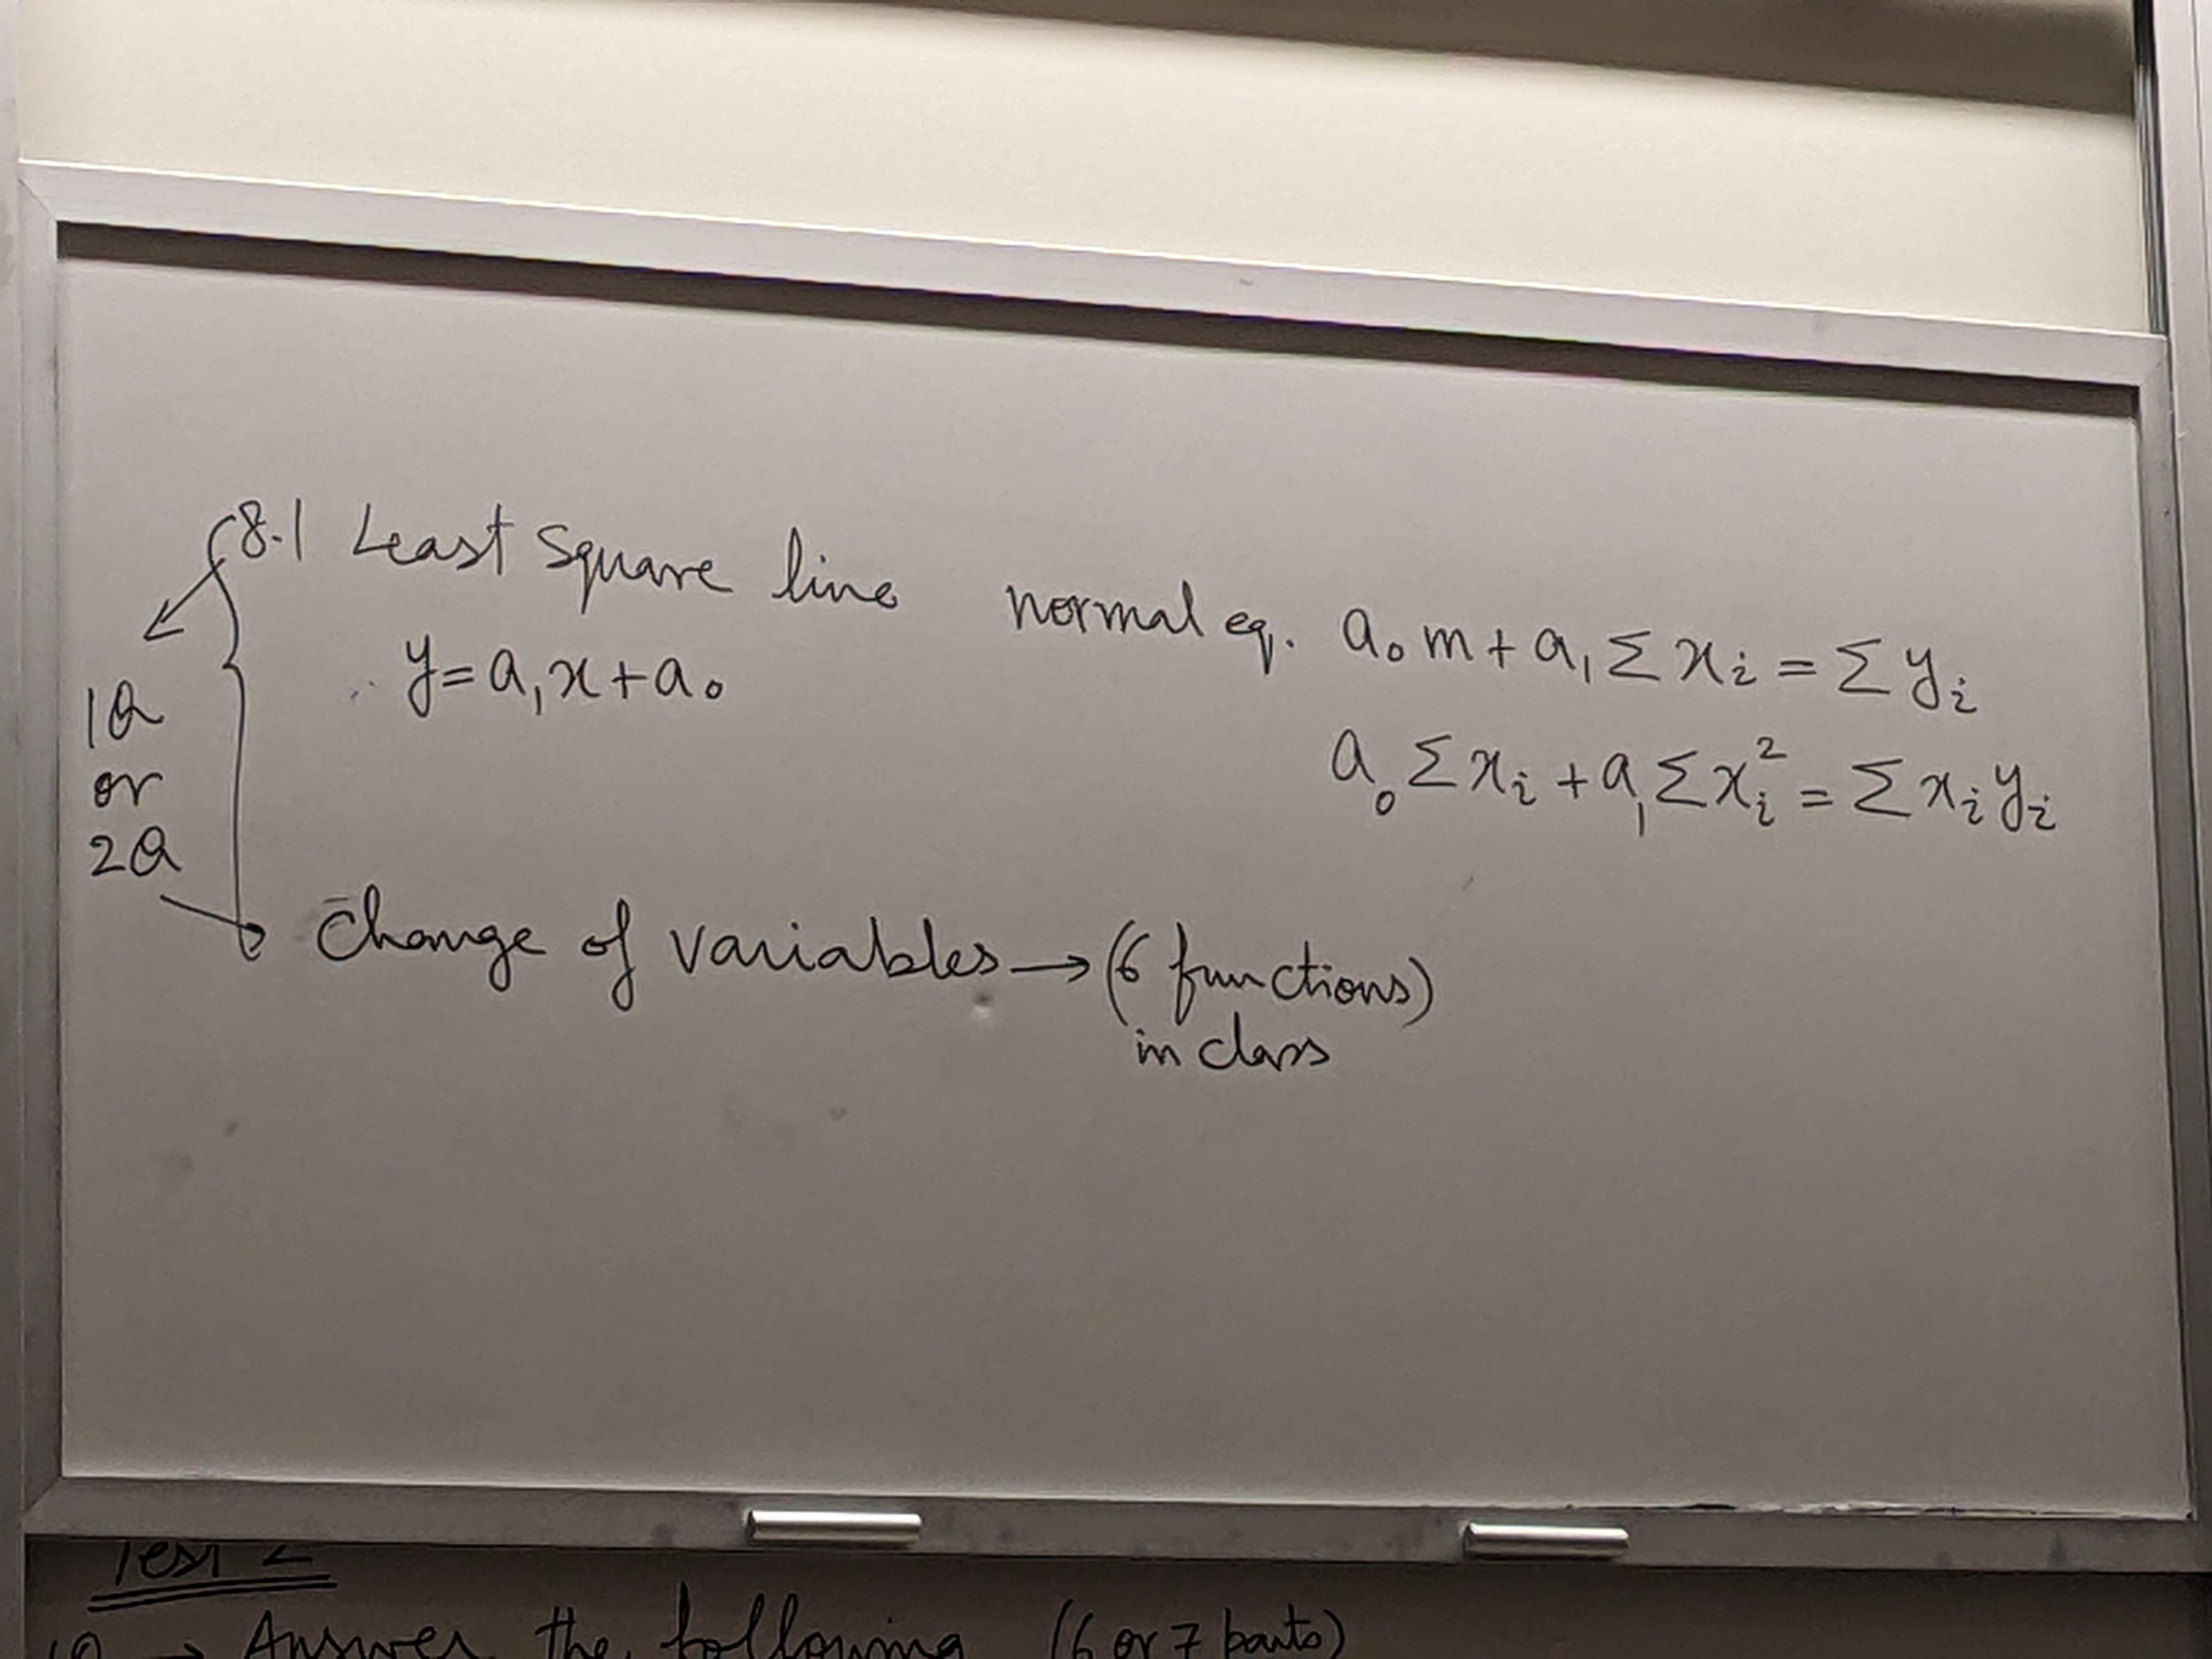 8.1 Least Square line normal eq. a₀m + a₁Σxᵢ = Σyᵢ
y = a₁x + a₀
a₀Σxᵢ + a₁Σxᵢ² = Σxᵢyᵢ
1Q
or
2Q
Change of variables → (6 functions)
in class
Test 2
1Q → Answer the following (6 or 7 parts)